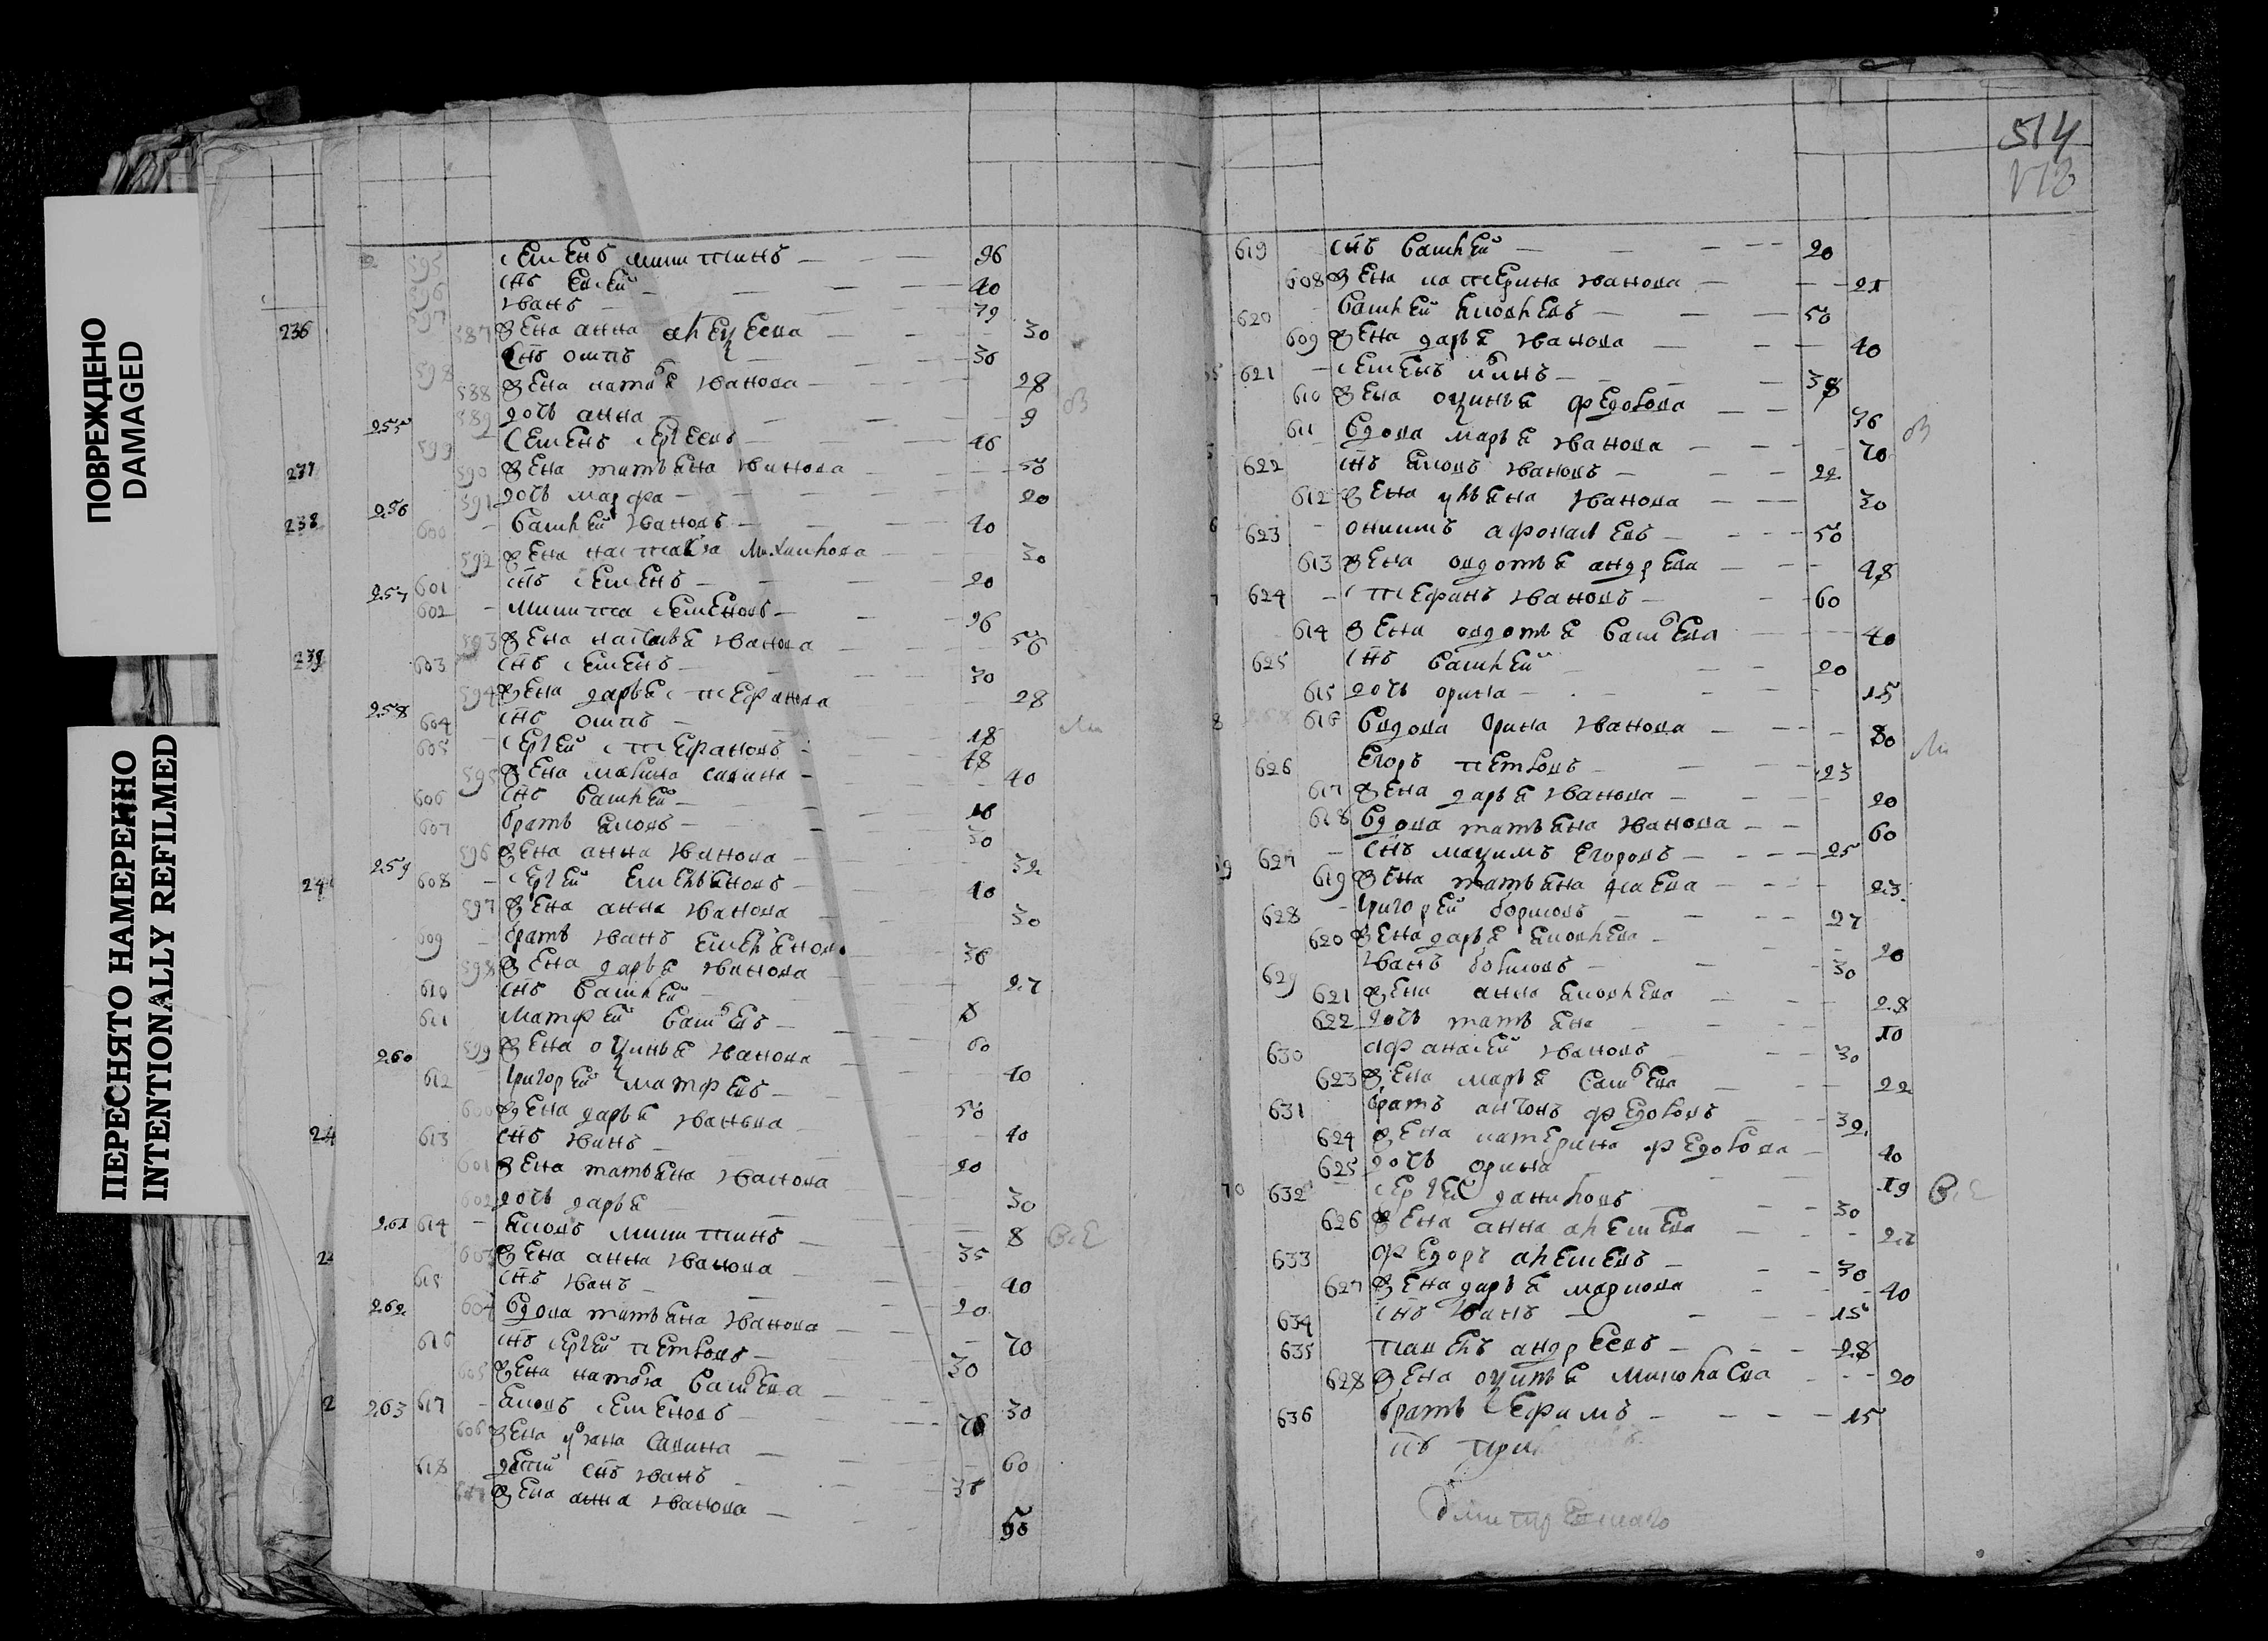 ПОВРЕЖДЕНО
DAMAGED
ПЕРЕСНЯТО НАМЕРЕННО
INTENTIONALLY REFILMED
595 семенъ никитинъ 96
596 снъ елисей 40
597 иванъ 39
236 587 жена анна алеѯеева 30
598 снъ осипъ 36
588 жена наталья иванова 28
255 589 дочь анна 9
599 семенъ сергеевъ 46
237 590 жена татьяна иванова 50
591 дочь марфа 20
238 256 600 василей ивановъ 40
592 жена настасья михаилова 30
257 601 снъ семенъ 20
602 никита семеновъ 96
593 жена настасья иванова 56
239 603 снъ семенъ 30
594 жена дарья степанова 28
258 604 снъ осипъ 18
605 сергей степановъ 48
595 жена марина савина 40
606 снъ василей 16
607 братъ яковъ 30
596 жена анна иванова 32
259 608 сергей емельяновъ 40
597 жена анна иванова 30
609 братъ иванъ емельяновъ 36
598 жена дарья иванова 27
610 снъ василей 8
611 матфей васильевъ 60
260 599 жена оѯинья иванова 40
612 григорей матфеевъ 50
600 жена дарья иванова 40
613 снъ иванъ 20
601 жена татьяна иванова 30
602 дочь дарья 8
261 614 яковъ никитинъ 35
603 жена анна иванова 40
615 снъ иванъ 20
262 604 вдова татьяна иванова 70
616 снъ сергей петровъ 30
605 жена наталья васильева 30
263 617 яковъ семеновъ 70
606 жена ульяна савина 60
618 снъ иванъ 36
607 жена анна иванова 50
514
619 снъ василей 20
608 жена катерина иванова 21
620 василей яковлевъ 50
609 жена дарья иванова 40
621 семенъ 38
610 жена оѯинья федорова 36
611 вдова марья иванова 70
622 снъ яковъ ивановъ 22
612 жена ульяна иванова 30
623 онисимъ афонасьевъ 50
613 жена овдотья андреева 48
624 степанъ ивановъ 60
614 жена овдотья васильева 40
625 снъ василей 20
615 дочь орина 15
616 вдова орина иванова 80
626 егоръ петровъ 23
617 жена дарья иванова 20
618 вдова татьяна иванова 60
627 снъ маѯимъ егоровъ 25
619 жена татьяна исаева 23
628 григорей борисовъ 27
620 жена дарья яковлева 20
629 иванъ борисовъ 30
621 жена анна яковлева 28
622 дочь татьяна 10
630 афанасей ивановъ 30
623 жена марья васильева 22
631 братъ антонъ федоровъ 32
624 жена катерина федорова 40
625 дочь орина 19
632 сергей даниловъ 30
626 жена анна алексеева 27
633 федоръ алексеевъ 30
627 жена дарья маркова 40
634 снъ иванъ 15
635 павелъ андреевъ 28
628 жена оѯинья миколаева 20
636 братъ ефимъ 15